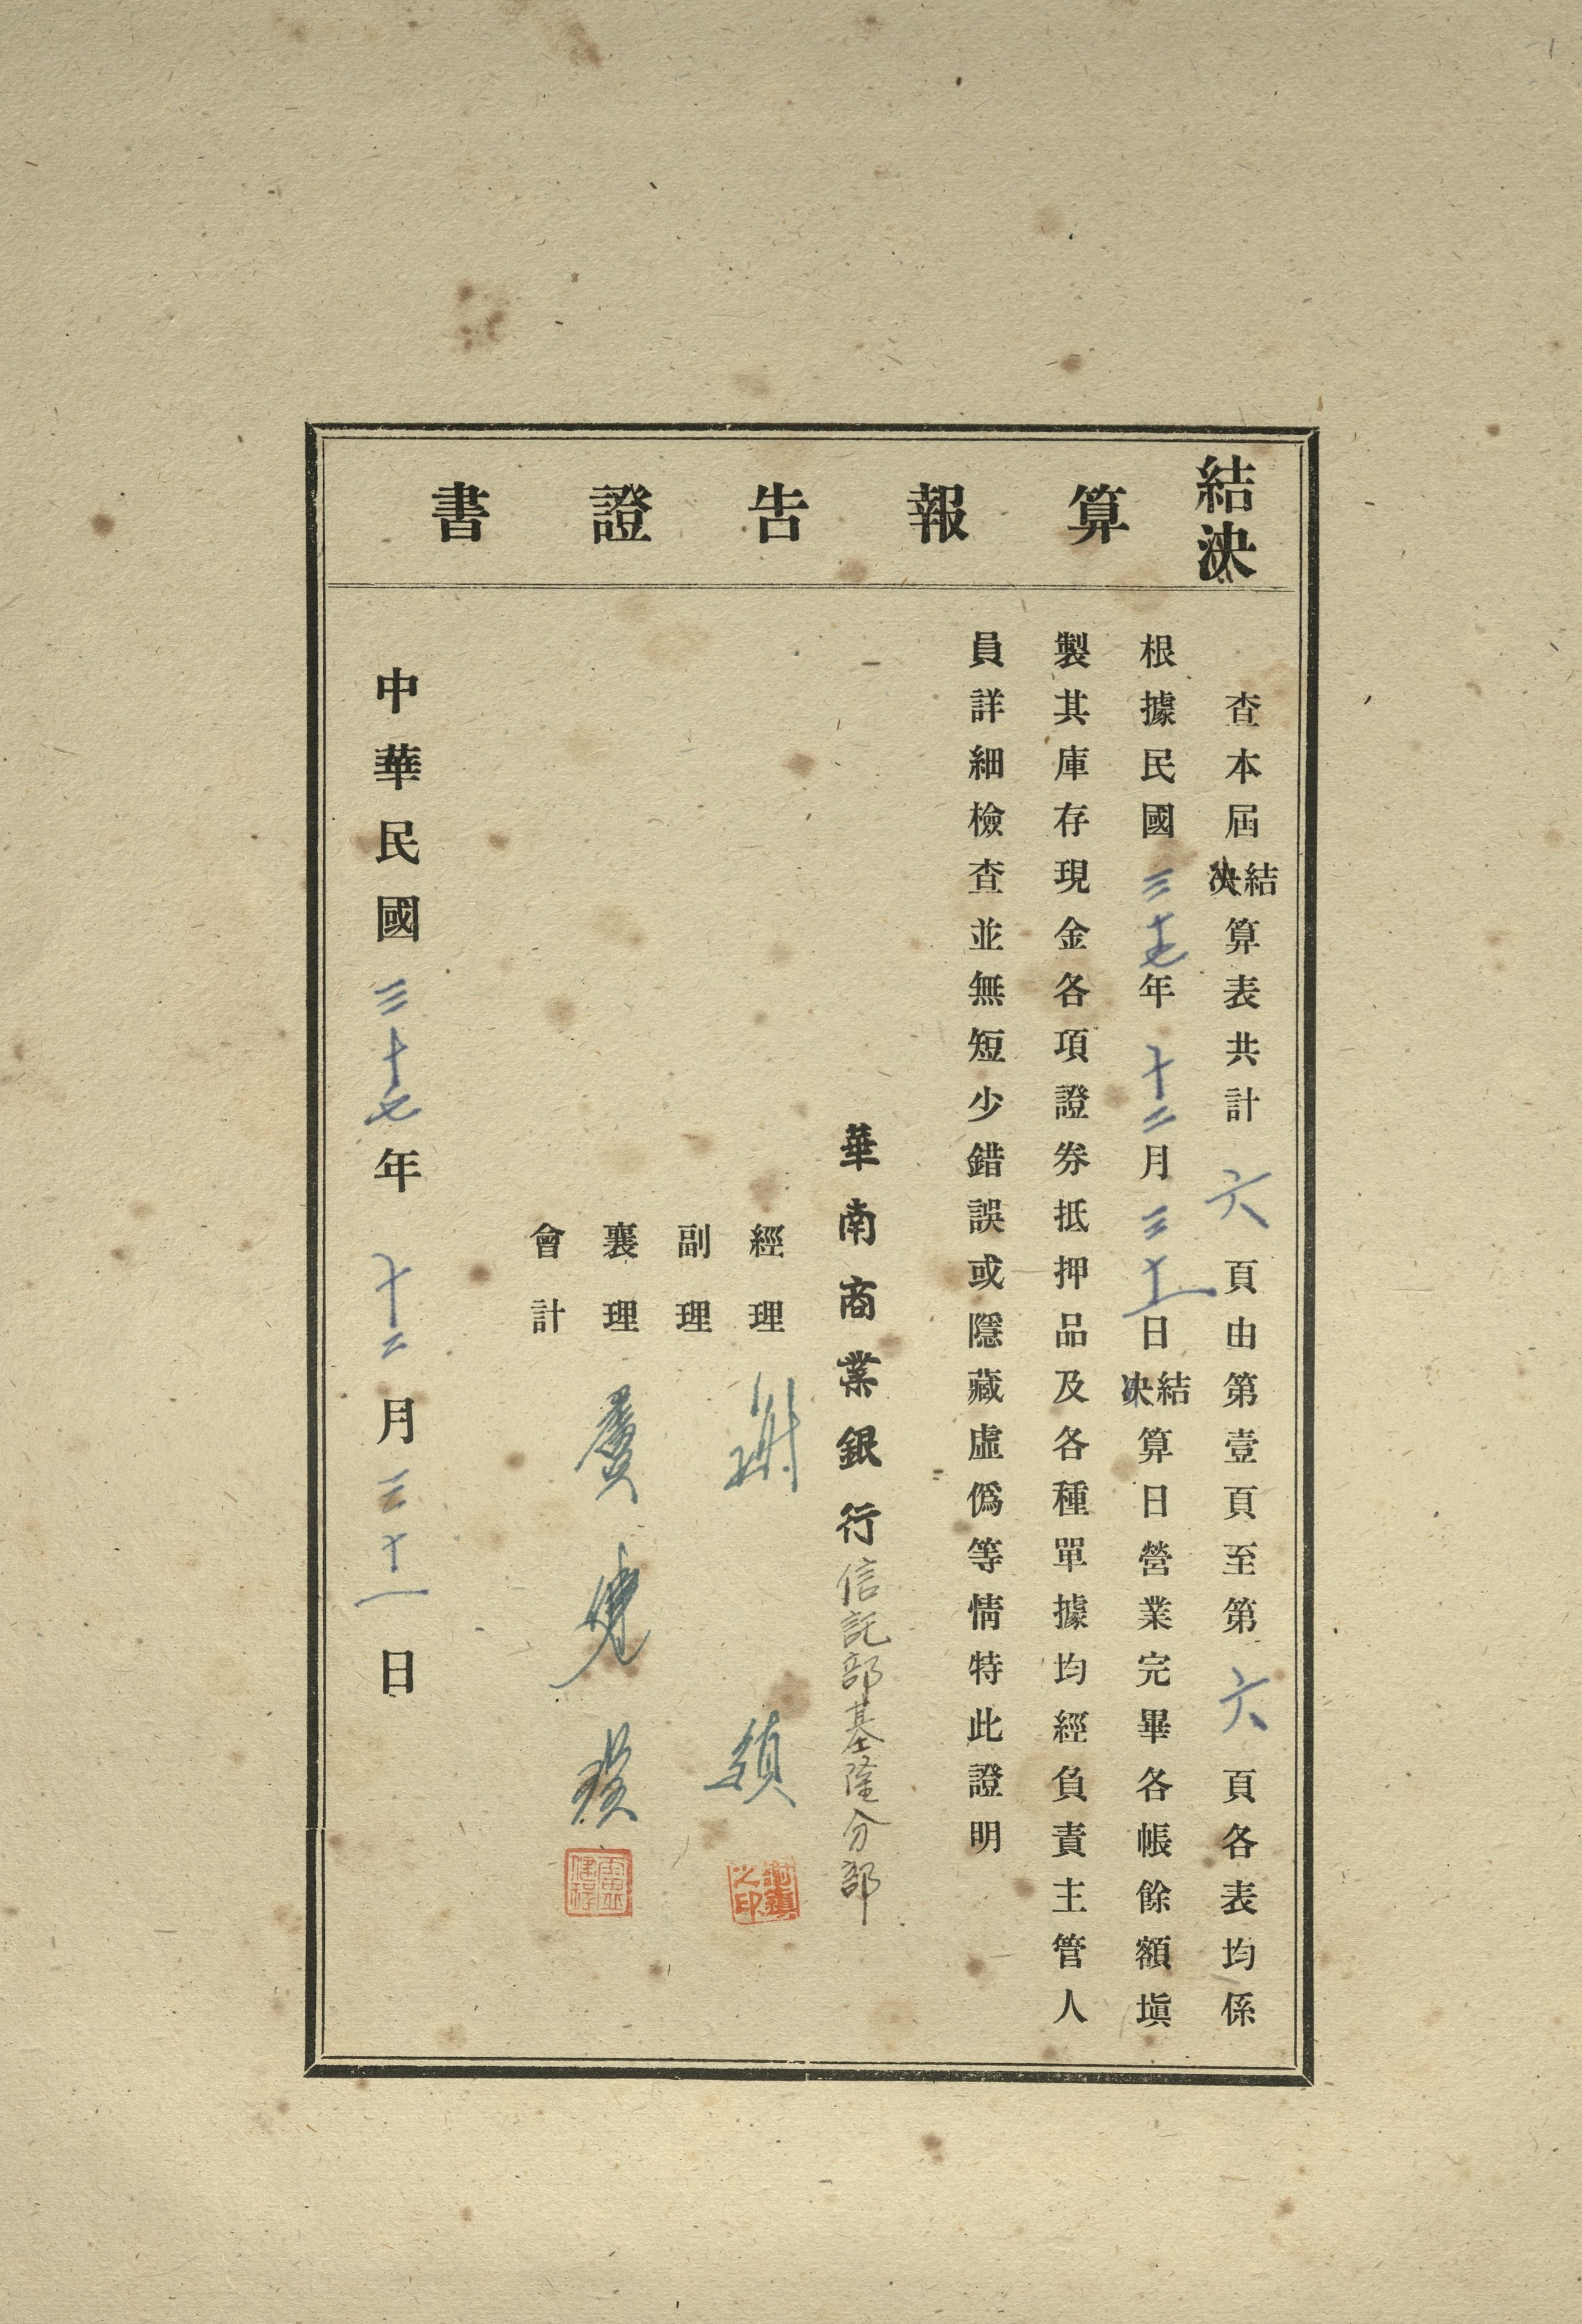 結決算報告證書
查本屆結決算表共計六頁由第壹頁至第六頁各表均係
根據民國三十七年十二月三十一日結決算日營業完畢各帳餘額塡
製其庫存現金各項證券抵押品及各種單據均經負責主管人
員詳細檢查並無短少錯誤或隱藏虛僞等情特此證明
華南商業銀行信託部基隆分部
經理 謝 鎮
副理
襄理
會計
謝鎮之印
中華民國三十七年十二月三十一日